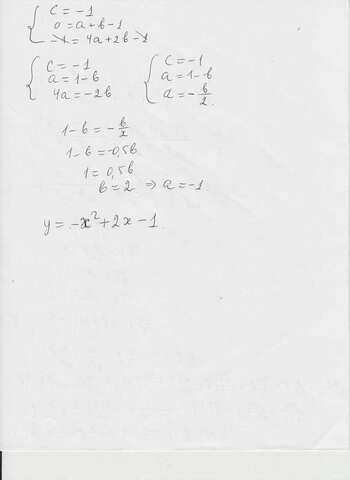 { c = -1
0 = a + b - 1
-1 = 4a + 2b - 1
{ c = -1
a = 1 - b
4a = -2b
{ c = -1
a = 1 - b
a = -b/2
1 - b = -b/x
1 - b = -0,5b
1 = 0,5b
b = 2 ⇒ a = -1
y = -x² + 2x - 1